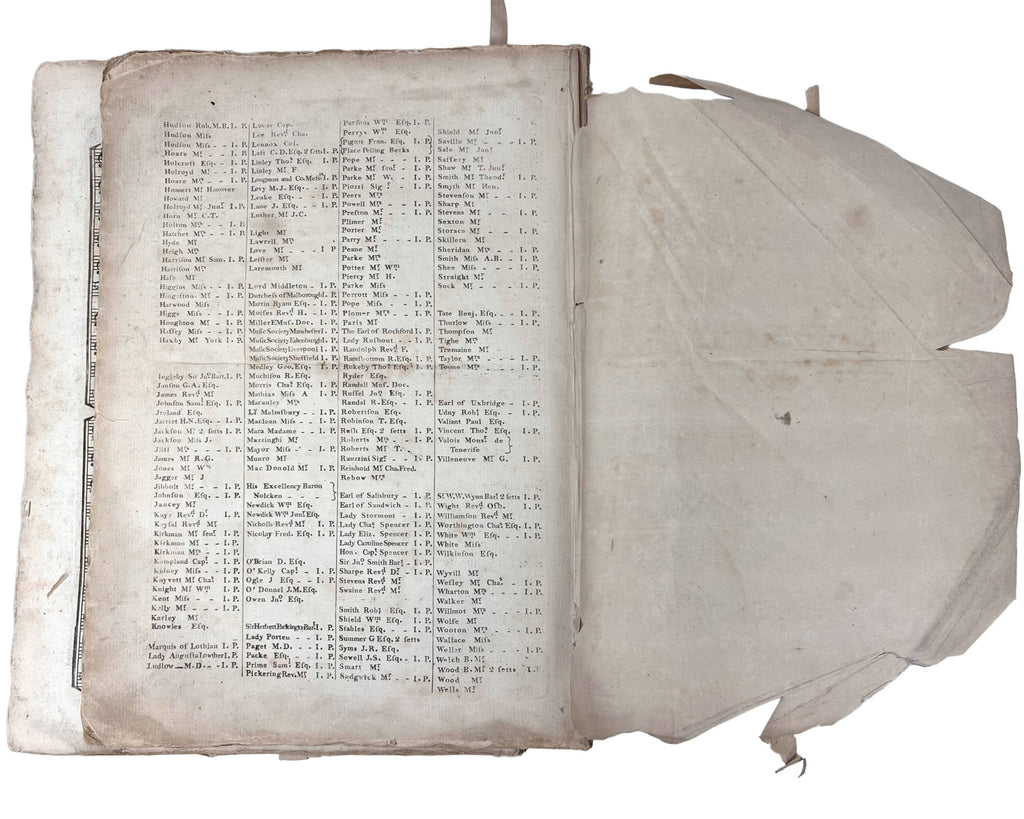 Hudſon Rob. M.B. I. P.
Hudſon Miſs
Hudſon Miſs - - I. P.
Hoare Mr - - I. P.
Holcroft Eſq. - - I. P.
Holroyd Mr - - I. P.
Hoare Mrs - - I. P.
Homert Mr Hanover
Howard Mr
Holroyd Mr Junr I. P.
Horn Mr C.T.
Holton Mrs - - I. P.
Hatchet Mrs - - I. P.
Hyde Mr
Heigh Mrs
Harriſon Mr Sam. I. P.
Harriſon Mrs
Haſe Mr
Higgins Miſs - - I. P.
Hingeſton Mr - I. P.
Harwood Miſs
Higgs Miſs - - I. P.
Houghton Mr - I. P.
Haffey Miſs - - I. P.
Haxby Mr York I. P.
Ingleby Sir Jno Bart. I. P.
Janſon G.A. Eſq.
James Revd Mr
Johnſon Saml Eſq. I. P.
Jreland Eſq.
Jarriet H.N. Eſq. - I. P.
Jackſon Mr 2 ſetts I. P.
Jackſon Miſs J.
Jliff Mrs - - - I. P.
James Mr R.G.
Jones Mr Wm
Jagger Mr J
Jibbolt Mr - - - I. P.
Johnſon Eſq. - - I. P.
Jancey Mr
Kaye Revd Dr I. P.
Keyſal Revd Mr
Kirkman Mr ſenr I. P.
Kirkman Mr - - I. P.
Kirkman Mrs - - I. P.
Kempland Capt - I. P.
Kidney Miſs - - I. P.
Knyvett Mr Chas I. P.
Knight Mr Wm I. P.
Kent Miſs - - - I. P.
Kelly Mr - - - I. P.
Karley Mr
Knowles Eſq.
Marquis of Lothian I. P.
Lady Auguſta Lowther I. P.
Ludlow M.D. - - I. P.
Lucas Cap.
Lee Revd Cha.
Lennox Col.
Laſt C.D. Eſq. 2 ſetts I. P.
Linley Thos Eſq. I. P.
Linley Mr F
Longman and Co. Meſſrs I. P.
Levy M.J. Eſq. - - I. P.
Leake Eſq. - - - I. P.
Lane J. Eſq. - - I. P.
Luther Mr J.C.
Light Mr
Lawrell Mrs
Love Mr - - - I P
Leiſter Mr
Laremouth Mr
Lord Middleton - I. P.
Dutcheſs of Malborough I. P.
Martin Ryam Eſq. - I. P.
Moiſes Revd H. - I. P.
Miller E Muſ. Doc. I. P.
Muſic Society Mancheſter I. P.
Muſic Society Edenburgh I. P.
Muſic Society Liverpool I. P.
Muſic Society Sheffield I. P.
Medley Geo. Eſq. I. P.
Muchiſon R. Eſq.
Morris Chas Eſq. I. P.
Mathias Miſs A I. P.
Macauley Mrs
Ly Malmſbury - - I. P.
Maclean Miſs - - I. P.
Mara Madame - - I. P.
Mazzinghi Mr
Mayor Miſs - - I. P.
Mauro Mr
Mac Donold Mr I. P.
His Excellency Baron
Nolcken - - I. P.
Newdick Wm Eſq.
Newdick Wm Junr Eſq.
Nicholls Revd Mr - I. P.
Nicolay Fred. Eſq. I. P.
O'Brian D. Eſq.
O'Kelly Capt - I. P.
Ogle J Eſq - - I. P.
O'Donnel J.M. Eſq.
Owen Jno Eſq.
Sir Herbert Packington Bart I. P.
Lady Porten - - I. P.
Paget M.D. - - - I. P.
Packe Eſq. - - I. P.
Prime Saml Eſq. I. P.
Pickering Rev. Mr I. P.
Parſons Wm Eſq. I. P.
Perrys Wm Eſq.
Pigott Fran. Eſq. I. P.
Place Pelling Berks
Pope Mr - - - I. P.
Parke Mr ſenr - I. P.
Parke Mr W. - I. P.
Piozzi Sigr - - I. P.
Peers Mrs
Powell Mrs - - I. P.
Preſton Mr - - I. P.
Plimer Mr
Porter Mr
Parry Mr - - - I. P.
Peane Mr
Parke Mrs
Potter Mr Wm
Piercy Mr H.
Parke Miſs
Perrott Miſs - - I. P.
Pope Miſs - - I. P.
Plomer Mrs - - I. P.
Paris Mr
The Earl of Rochford I. P.
Lady Rafhout - - I. P.
Randolph Revd F.
Ranſbottom R. Eſq. I. P.
Rokeby Thos Eſq. I. P.
Ryder Eſq.
Randall Muſ. Doc.
Ruſſel Jno Eſq. I. P.
Randal R. Eſq. - I. P.
Robertſon Eſq.
Robinſon T. Eſq.
Raſh Eſq. 2 ſetts I. P.
Roberts Mrs - - I. P.
Roberts Mr T.
Rauzzini Sigr - I. P.
Reinhold Mr Cha. Fred.
Rebow Mrs
Earl of Salisbury - I. P.
Earl of Sandwich - I. P.
Lady Stormont - I. P.
Lady Chat Spencer I. P.
Lady Eliz. Spencer I. P.
Lady Caroline Spencer I. P.
Hon. Capt Spencer I. P.
Sir Jno Smith Bart I. P.
Sharpe Revd Dr - I. P.
Stevens Revd Mr
Swaine Revd Mr
Smith Robt Eſq. I. P.
Shield Wm Eſq. I. P.
Stables Eſq. - - I. P.
Summer G Eſq. 2 ſetts
Syms J.R. Eſq.
Sewell J.S. Eſq. - I. P.
Smart Mr
Sedgwick Mr - - I. P.
Shield Mr Junr
Saville Mr - - - I. P.
Sale Mr Junr
Saffery Mr
Shaw Mr T. Junr
Smith Mr Theodr I. P.
Smyth Mr Hen.
Stevenſon Mr - I. P.
Sharp Mr
Stevens Mr - - I. P.
Sexton Mr
Storace Mr - - I. P.
Skillern Mr
Sheridan Mrs - - I. P.
Smith Miſs A.B. - I. P.
Shee Miſs - - - I. P.
Straight Mr
Suck Mr - - - I. P.
Tate Benj. Eſq. - I. P.
Thurlow Miſs - - I. P.
Thompſon Mr
Tighe Mrs
Tremaine Mr
Taylor Mrs - - - I. P.
Toone Mrs - - - I. P.
Earl of Uxbridge - I. P.
Udny Robt Eſq. - I. P.
Valiant Paul Eſq.
Vincent Thos Eſq. I. P.
Valois Monſr de
Tenerife
Villeneuve Mr G. I. P.
Sr W.W. Wynn Bart 2 ſetts I. P.
Wight Revd Oſb. I. P.
Williamſon Revd Mr
Worthington Chas Eſq. I. P.
White Wm Eſq. - - I. P.
White Miſs
Wilkinſon Eſq.
Wyvill Mr
Weſley Mr Chas - I. P.
Wharton Mrs - - I. P.
Walker Mr
Willmot Mrs - - I. P.
Wolfe Mr
Wooton Mrs - - I. P.
Wallace Miſs
Weller Miſs - - I. P.
Welch B. Mr
Wood B. Mr 2 ſetts I. P.
Wood Mr
Wells Mr